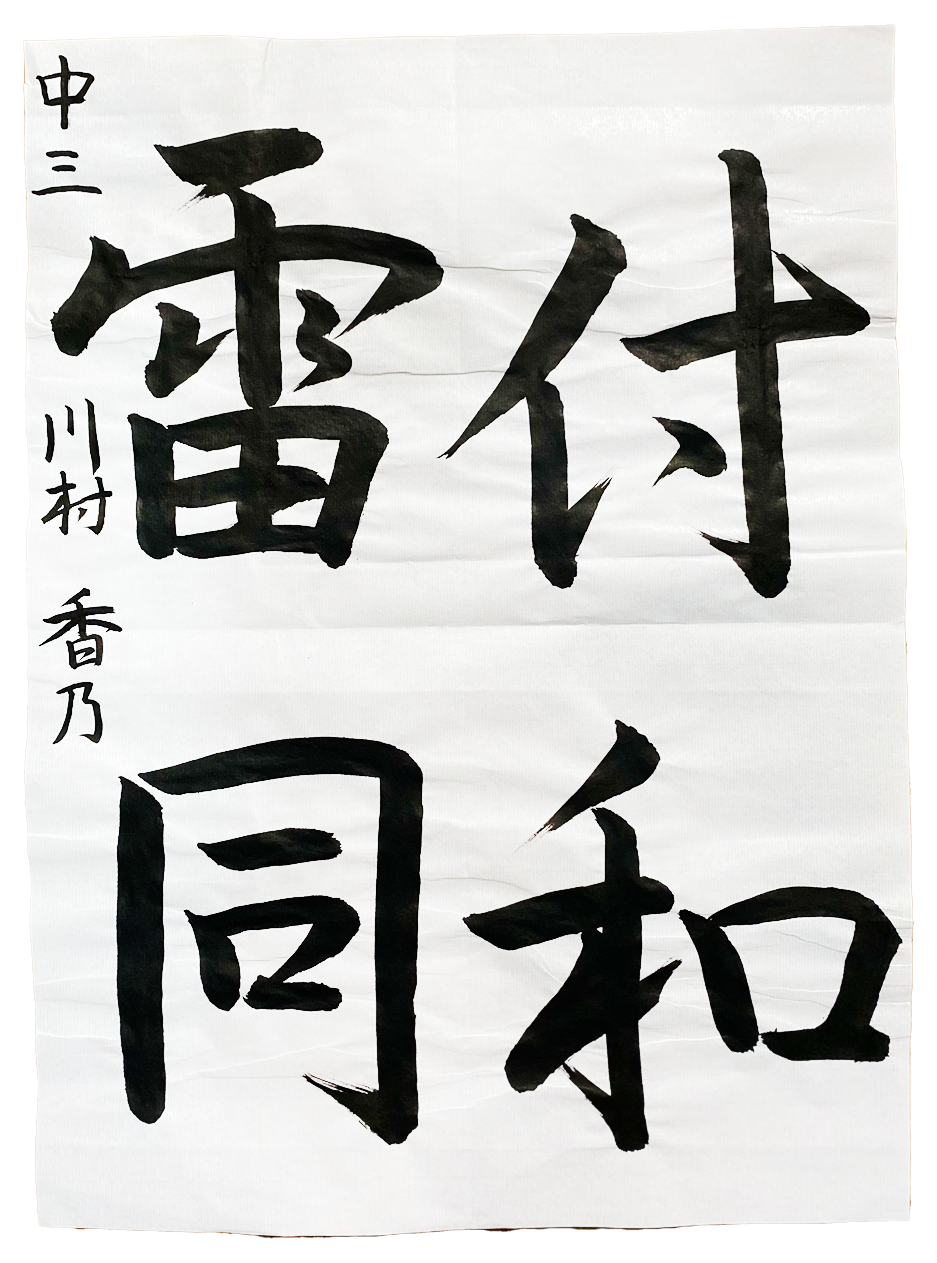 付和
雷同
中三 川村 香乃